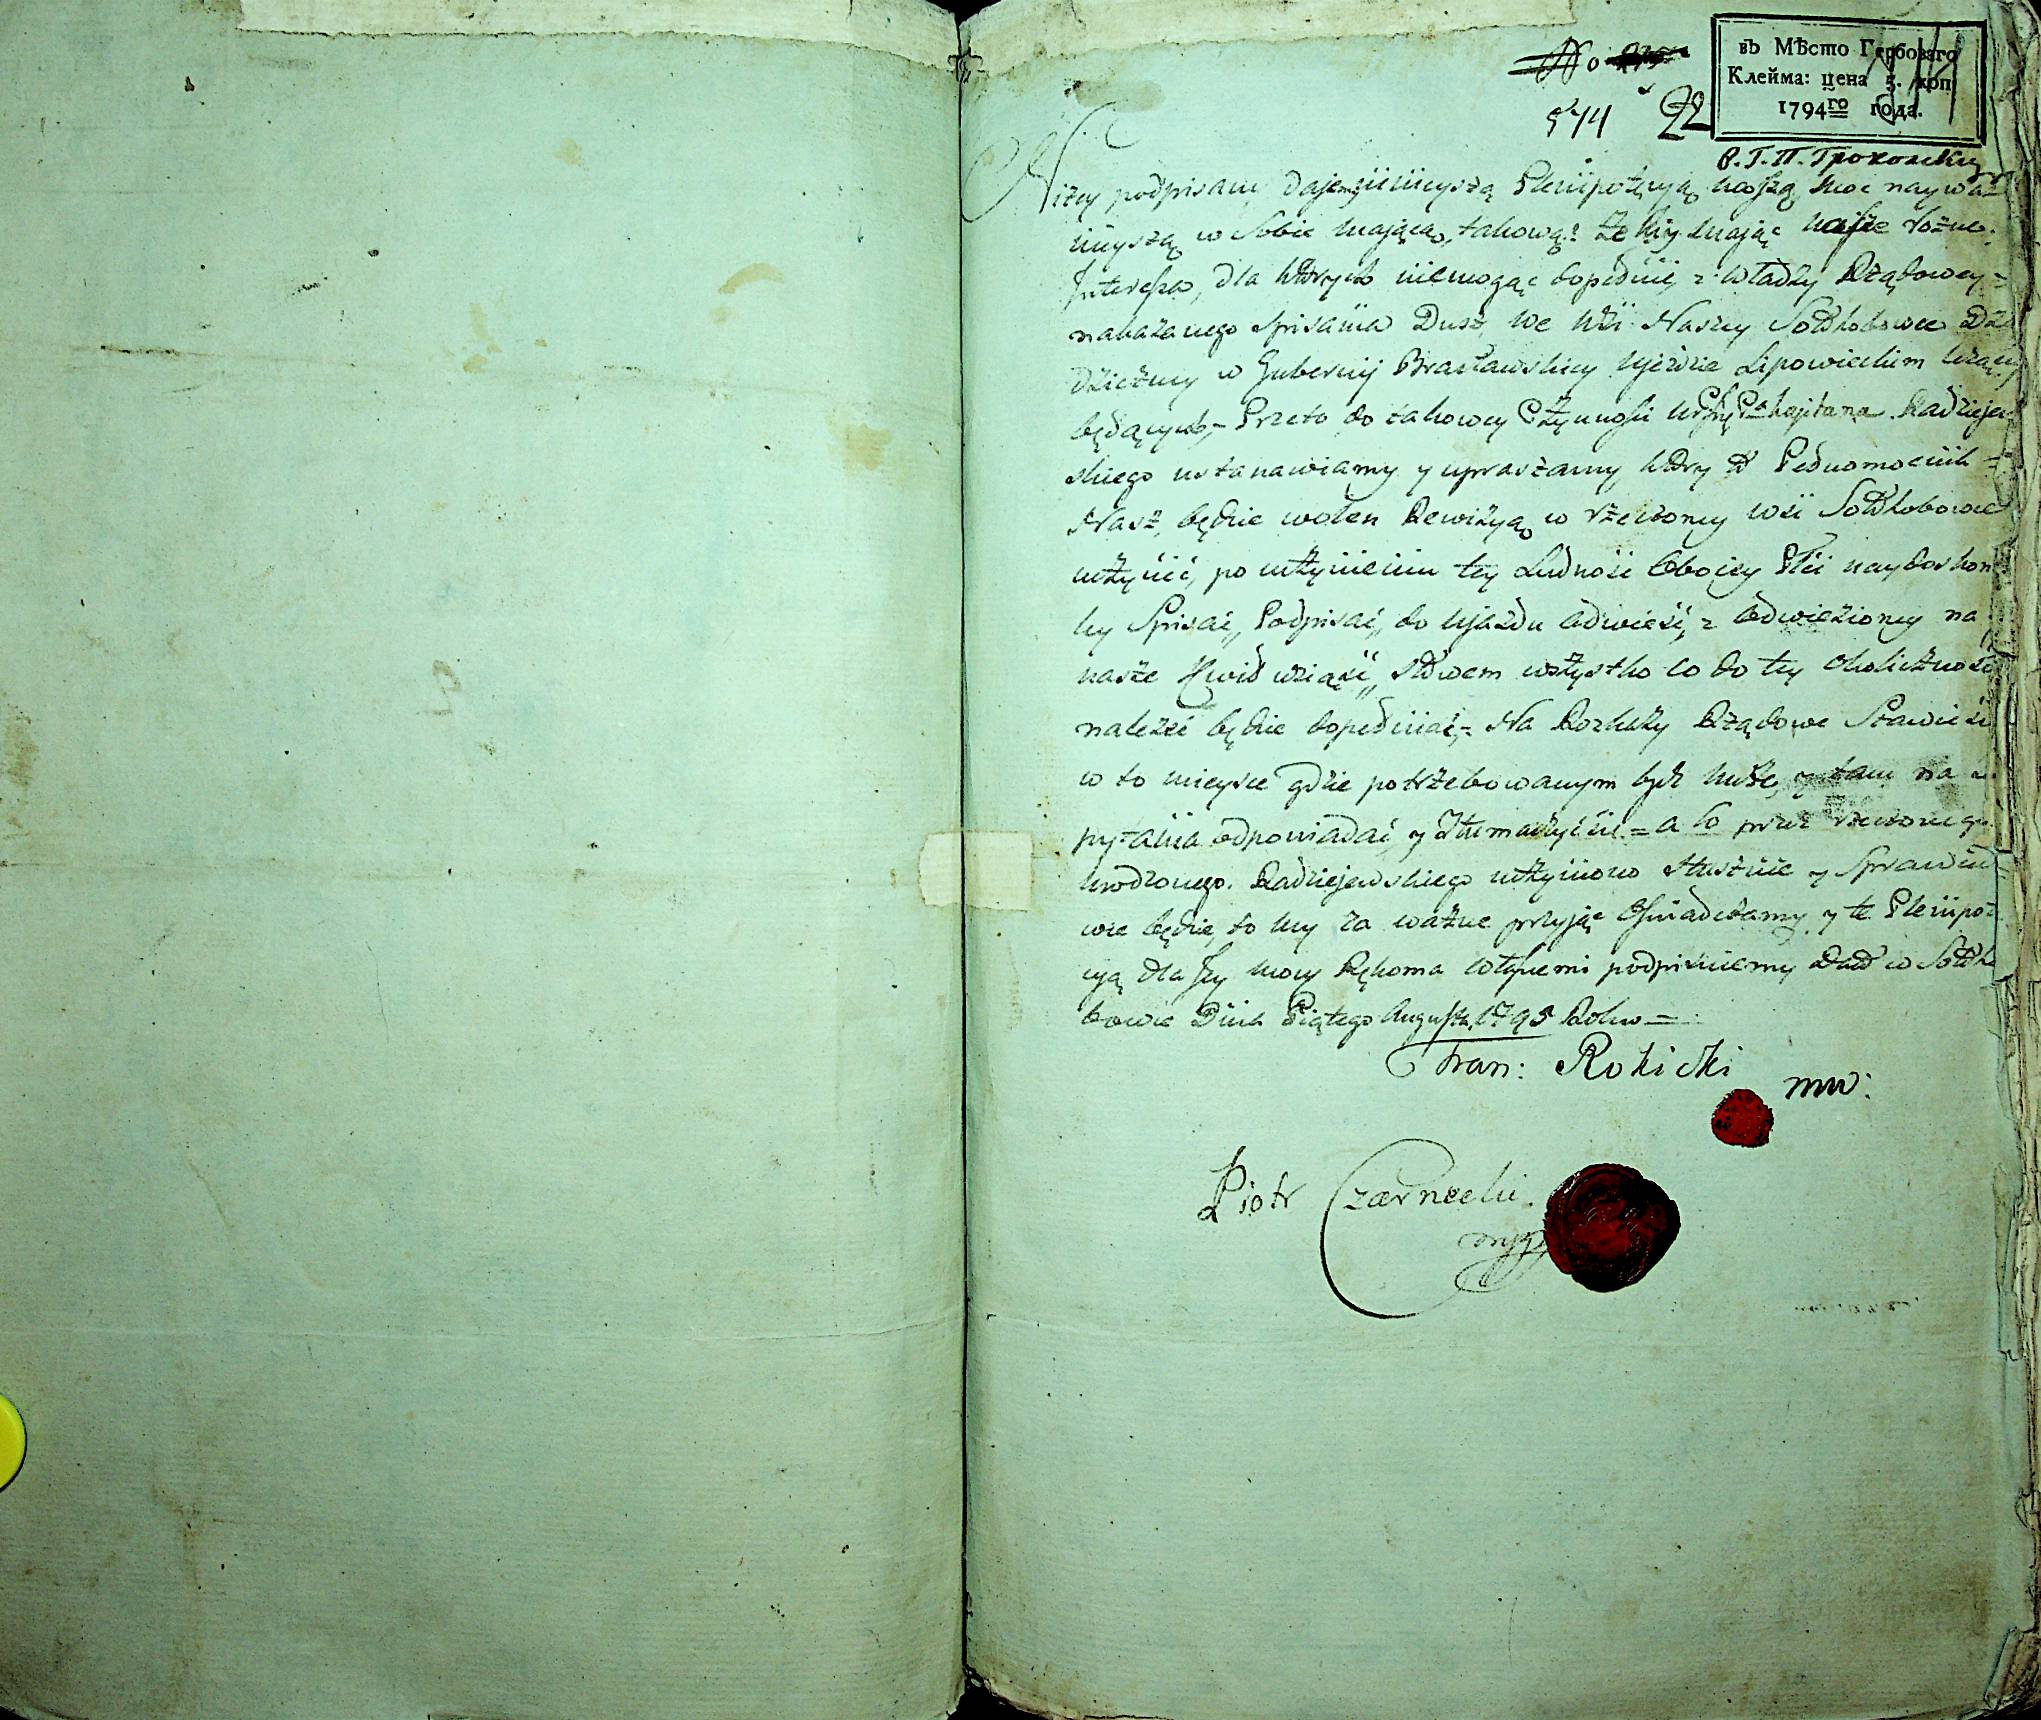 въ Мѣсто Гербоваго
Клейма: цена 5. коп
1794го года.
No
544 22
Niżey podpisani dajemy ninieyszą Plenipotęcyją naszą moc nayważ
nieyszą w Sobie mającą, takową: że my mając nasze rożne
Interessa, dla ktorych niemogąc dopełnić z władzy Rządowey =
nakazanego Spisania Dusz, we Wsi Naszey Sołohobowce Dzie
dziczney w Gubernij Bracławskiey Ujezdzie Lipowieckim
będących, = Przeto do takowey Czynnosci Kapitana Radziejew
skiego ustanawiamy y upraszamy, ktory to Pełnomocnik =
Nasz, będzie wolen Rewizyą w rzeczoney wsi
uczynić, po uczynieniu tey Ludność Oboiey Płci naydoskon
ley Spisać, Podpisać, do Ujazdu odwieść, z odwiezioney na
nasze Kwit wziąść, słowem wszystko co do tey okoliczności
należeć będzie dopełniać, = Na Rozkazy Rządowe Stawić się
w to mieysce gdzie potrzebowanym być może, y tam na
pytania odpowiadać y Tłumaczyć się = a co przez rzeczonego
urodzonego Radziejewskiego uczyniono słusznie y Sprawiedli
wie będzie, to my za ważne przyjąć Oswiadczamy, y tę Plenipotę
cyą dla Jey mocy Rękoma własnemi podpisuiemy Dat w
bowce Dnia Piątego Augusta 1795 Roku =
Fran: Rokicki
mw:
Piotr Czarnecki
mp